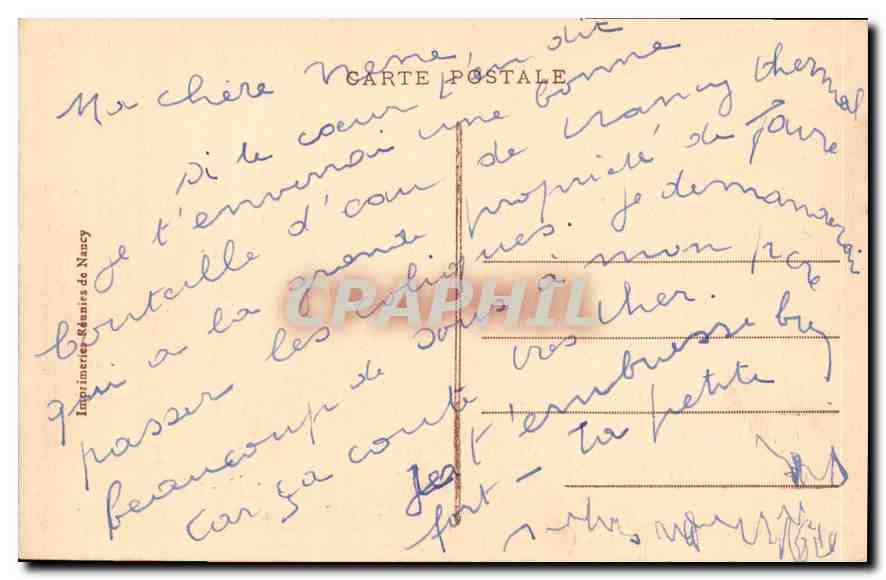 CARTE POSTALE
Ma chère Nene,
Si le cœur t'en dit
je t'enverrai une bonne
bouteille d'eau de Nancy thermal
qui a la grande propriété de faire
passer les coliques. Je demanderai
beaucoup de sous à mon père
Car ça coute très cher.
Je t'embrasse bien
fort – Ta petite
Imprimeries Réunies de Nancy
CPAPHIL